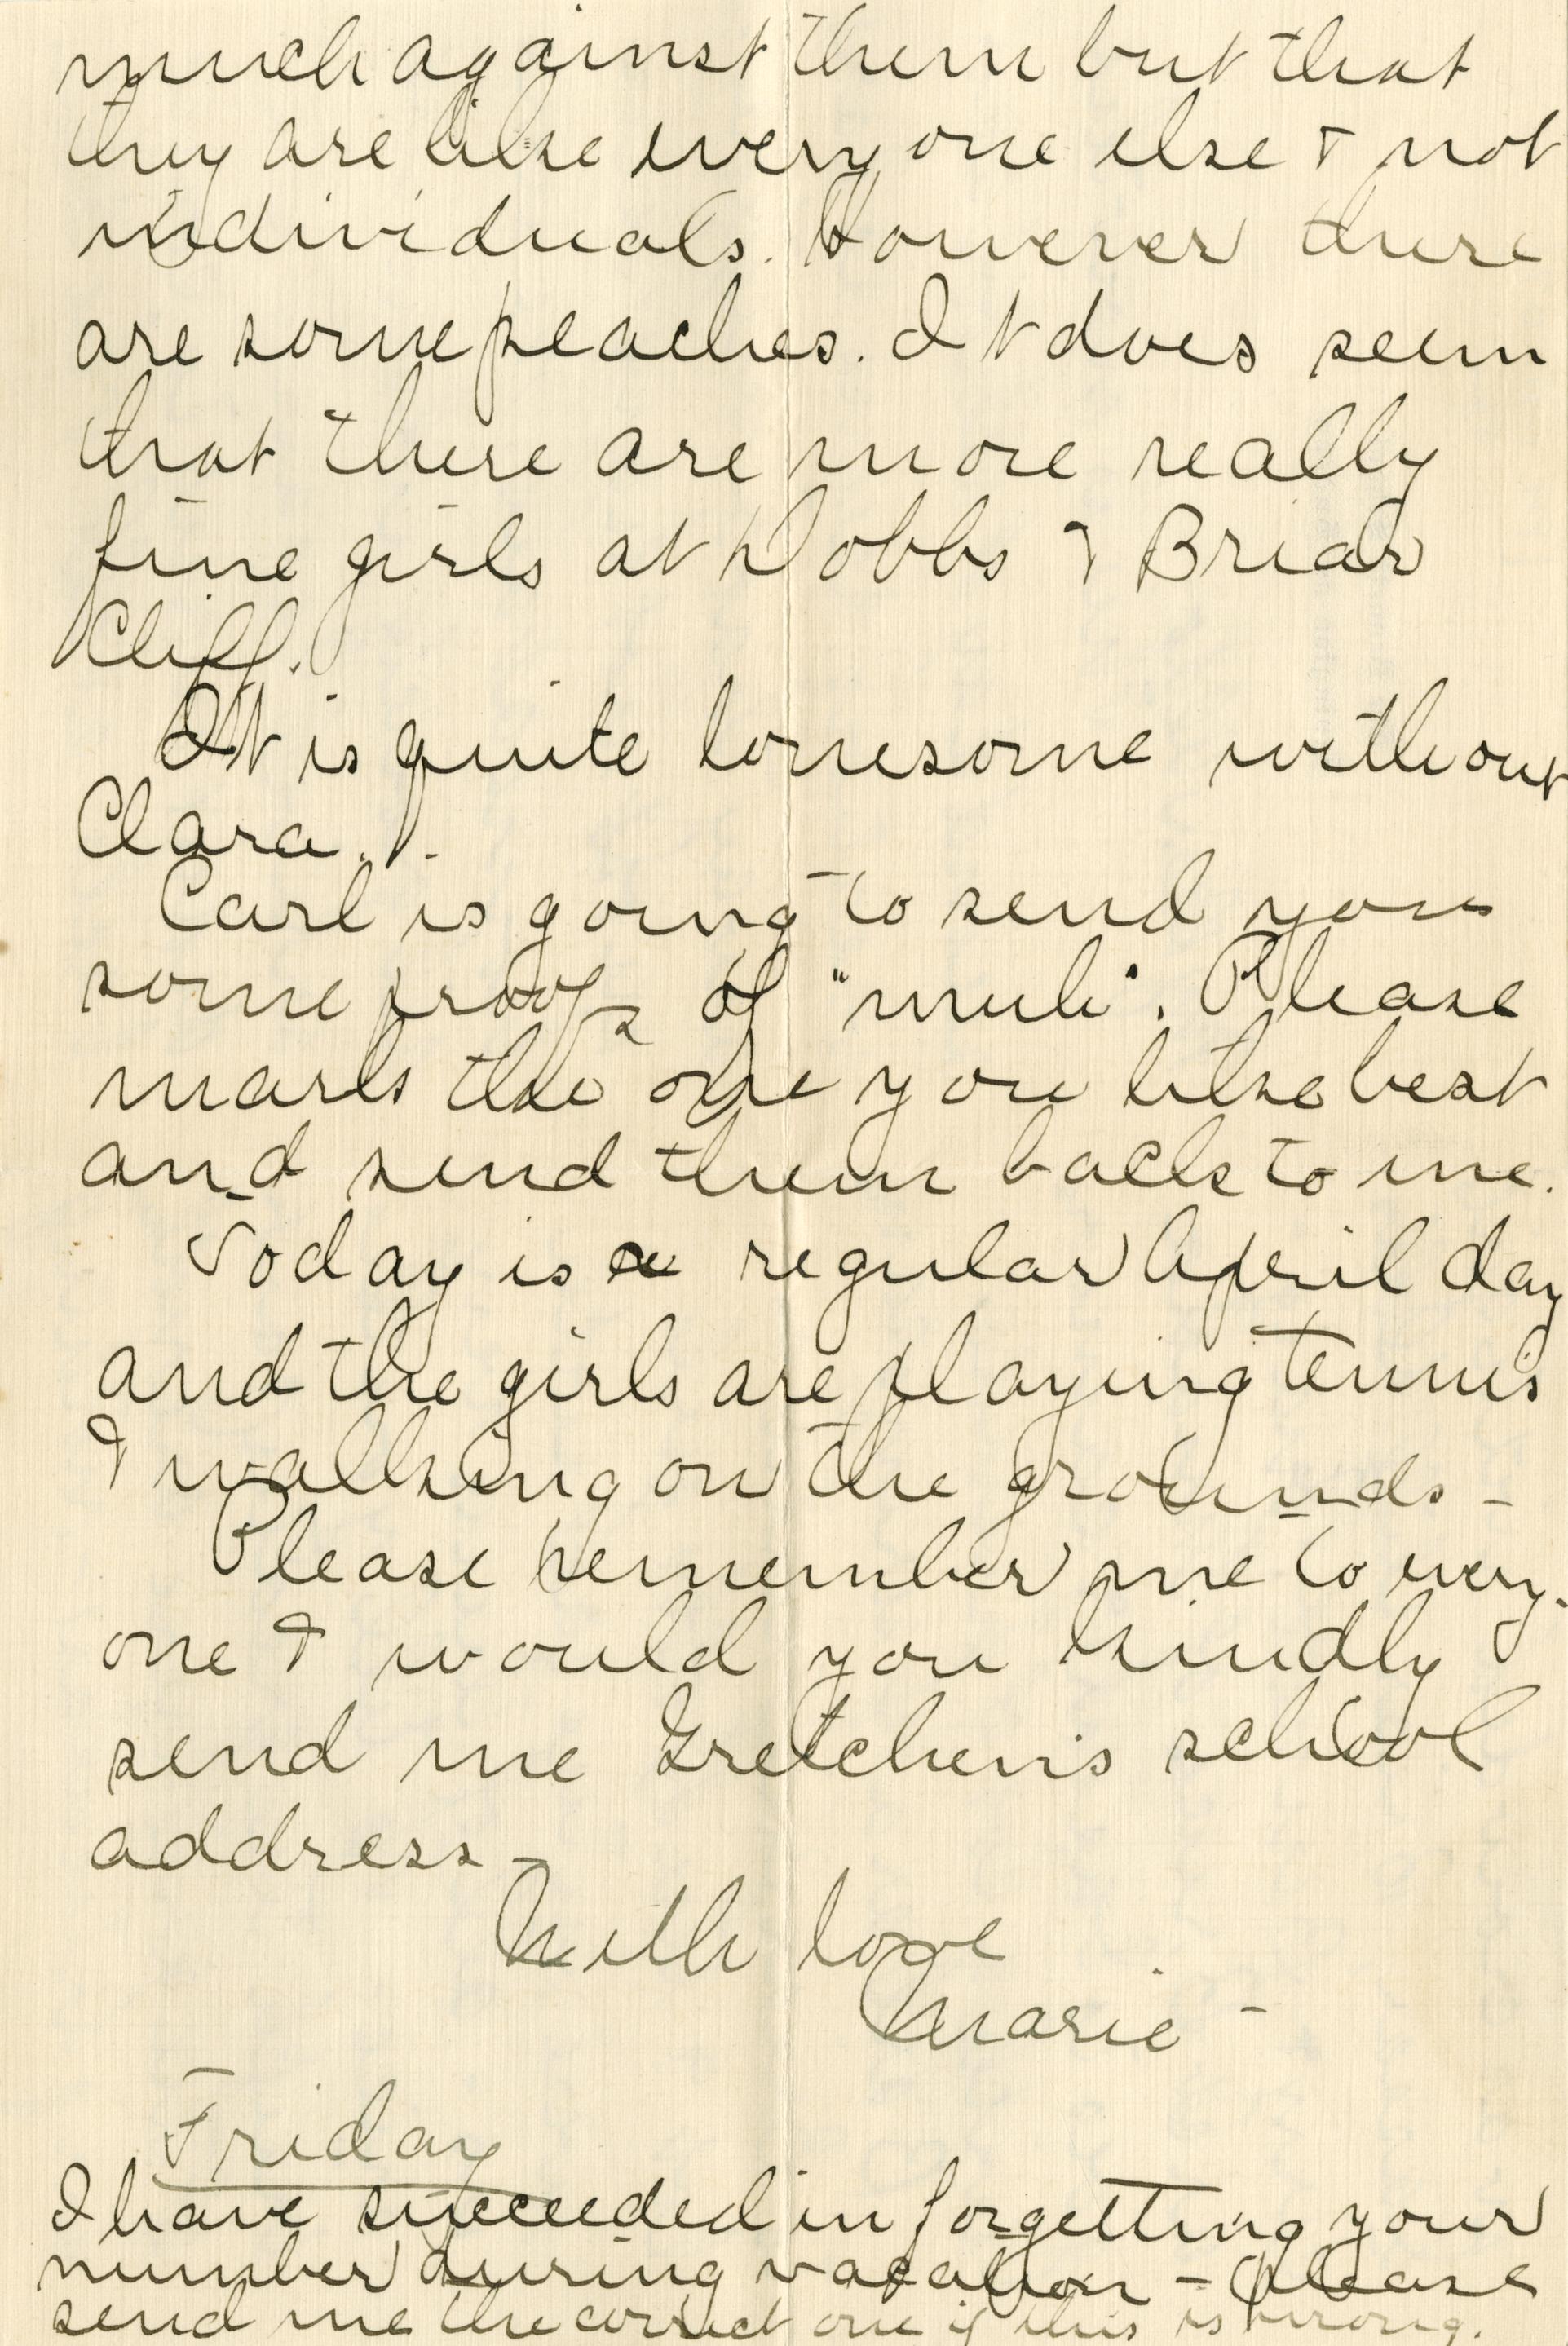 much against them but that
they are like every one else & not
individuals. However there
are some peaches. It does seem
that there are more really
fine girls at Dobbs & Briar
Cliff.
It is quite lonesome without
Clara.
Carl is going to send you
some proofs of "muh". Please
mark the one you like best
and send them back to me.
Today is a regular April day
and the girls are playing tennis
& walking on the grounds -
Please remember me to every-
one & would you kindly
send me Gretchen's school
address -
With love
Marie -
Friday
I have succeeded in forgetting your
number during vacation - Please
send me the correct one if this is wrong.